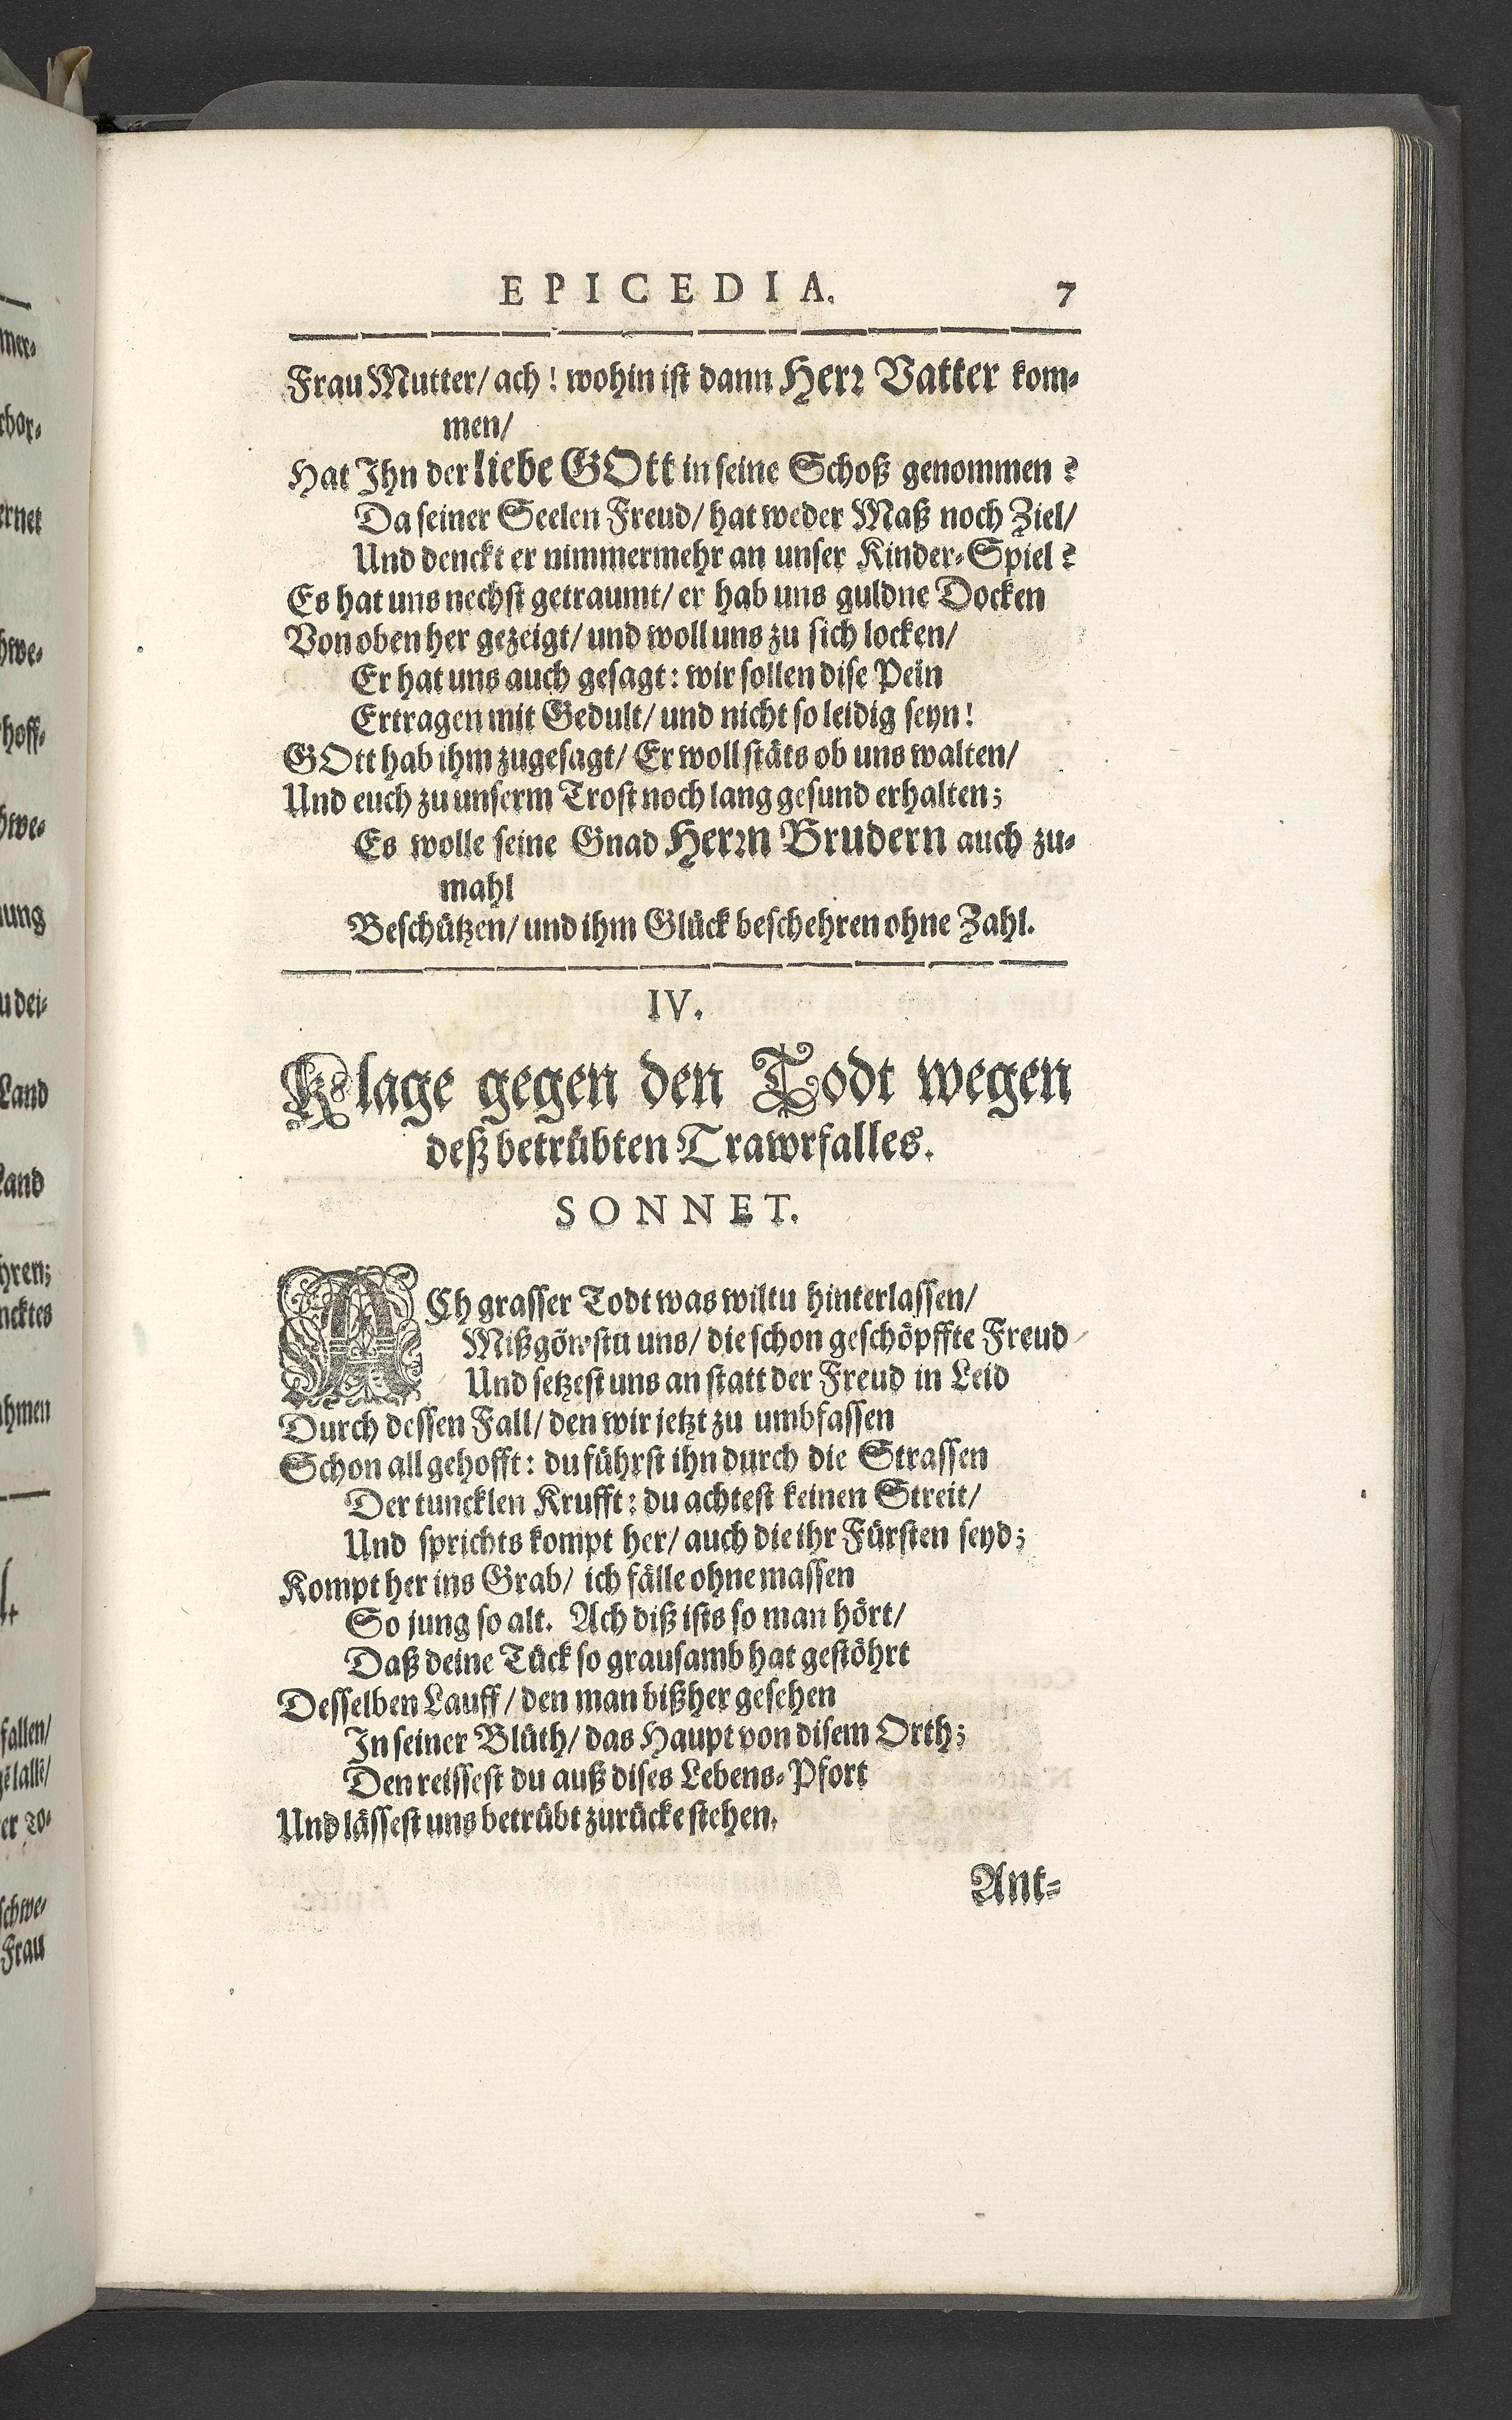 EPICEDIA. 7
Frau Mutter/ ach! wohin ist dann Herr Vatter kom-
men/
Hat Ihn der liebe GOtt in seine Schoß genommen?
Da seiner Seelen Freud/ hat weder Maß noch Ziel/
Und denckt er nimmermehr an unser Kinder-Spiel?
Es hat uns nechst getraumt/ er hab uns guldne Docken
Von oben her gezeigt/ und woll uns zu sich locken/
Er hat uns auch gesagt: wir sollen dise Pein
Ertragen mit Gedult/ und nicht so leidig seyn!
GOtt hab ihm zugesagt/ Er woll stäts ob uns walten/
Und euch zu unserm Trost noch lang gesund erhalten;
Es wolle seine Gnad Herrn Brudern auch zu-
mahl
Beschützen/ und ihm Glück beschehren ohne Zahl.
IV.
Klage gegen den Todt wegen
deß betrübten Trawrfalles.
SONNET.
ACh grasser Todt was wiltu hinterlassen/
Mißgönstu uns/ die schon geschöpffte Freud
Und setzest uns an statt der Freud in Leid
Durch dessen Fall/ den wir jetzt zu umbfassen
Schon all gehofft: du führst ihn durch die Strassen
Der tuncklen Krufft: du achtest keinen Streit/
Und sprichts kompt her/ auch die ihr Fürsten seyd;
Kompt her ins Grab/ ich fälle ohne massen
So jung so alt. Ach diß ists so man hört/
Daß deine Tück so grausamb hat gestöhrt
Desselben Lauff/ den man bißher gesehen
In seiner Blüth/ das Haupt von disem Orth;
Den reissest du auß dises Lebens-Pfort
Und lässest uns betrübt zurücke stehen.
Ant-